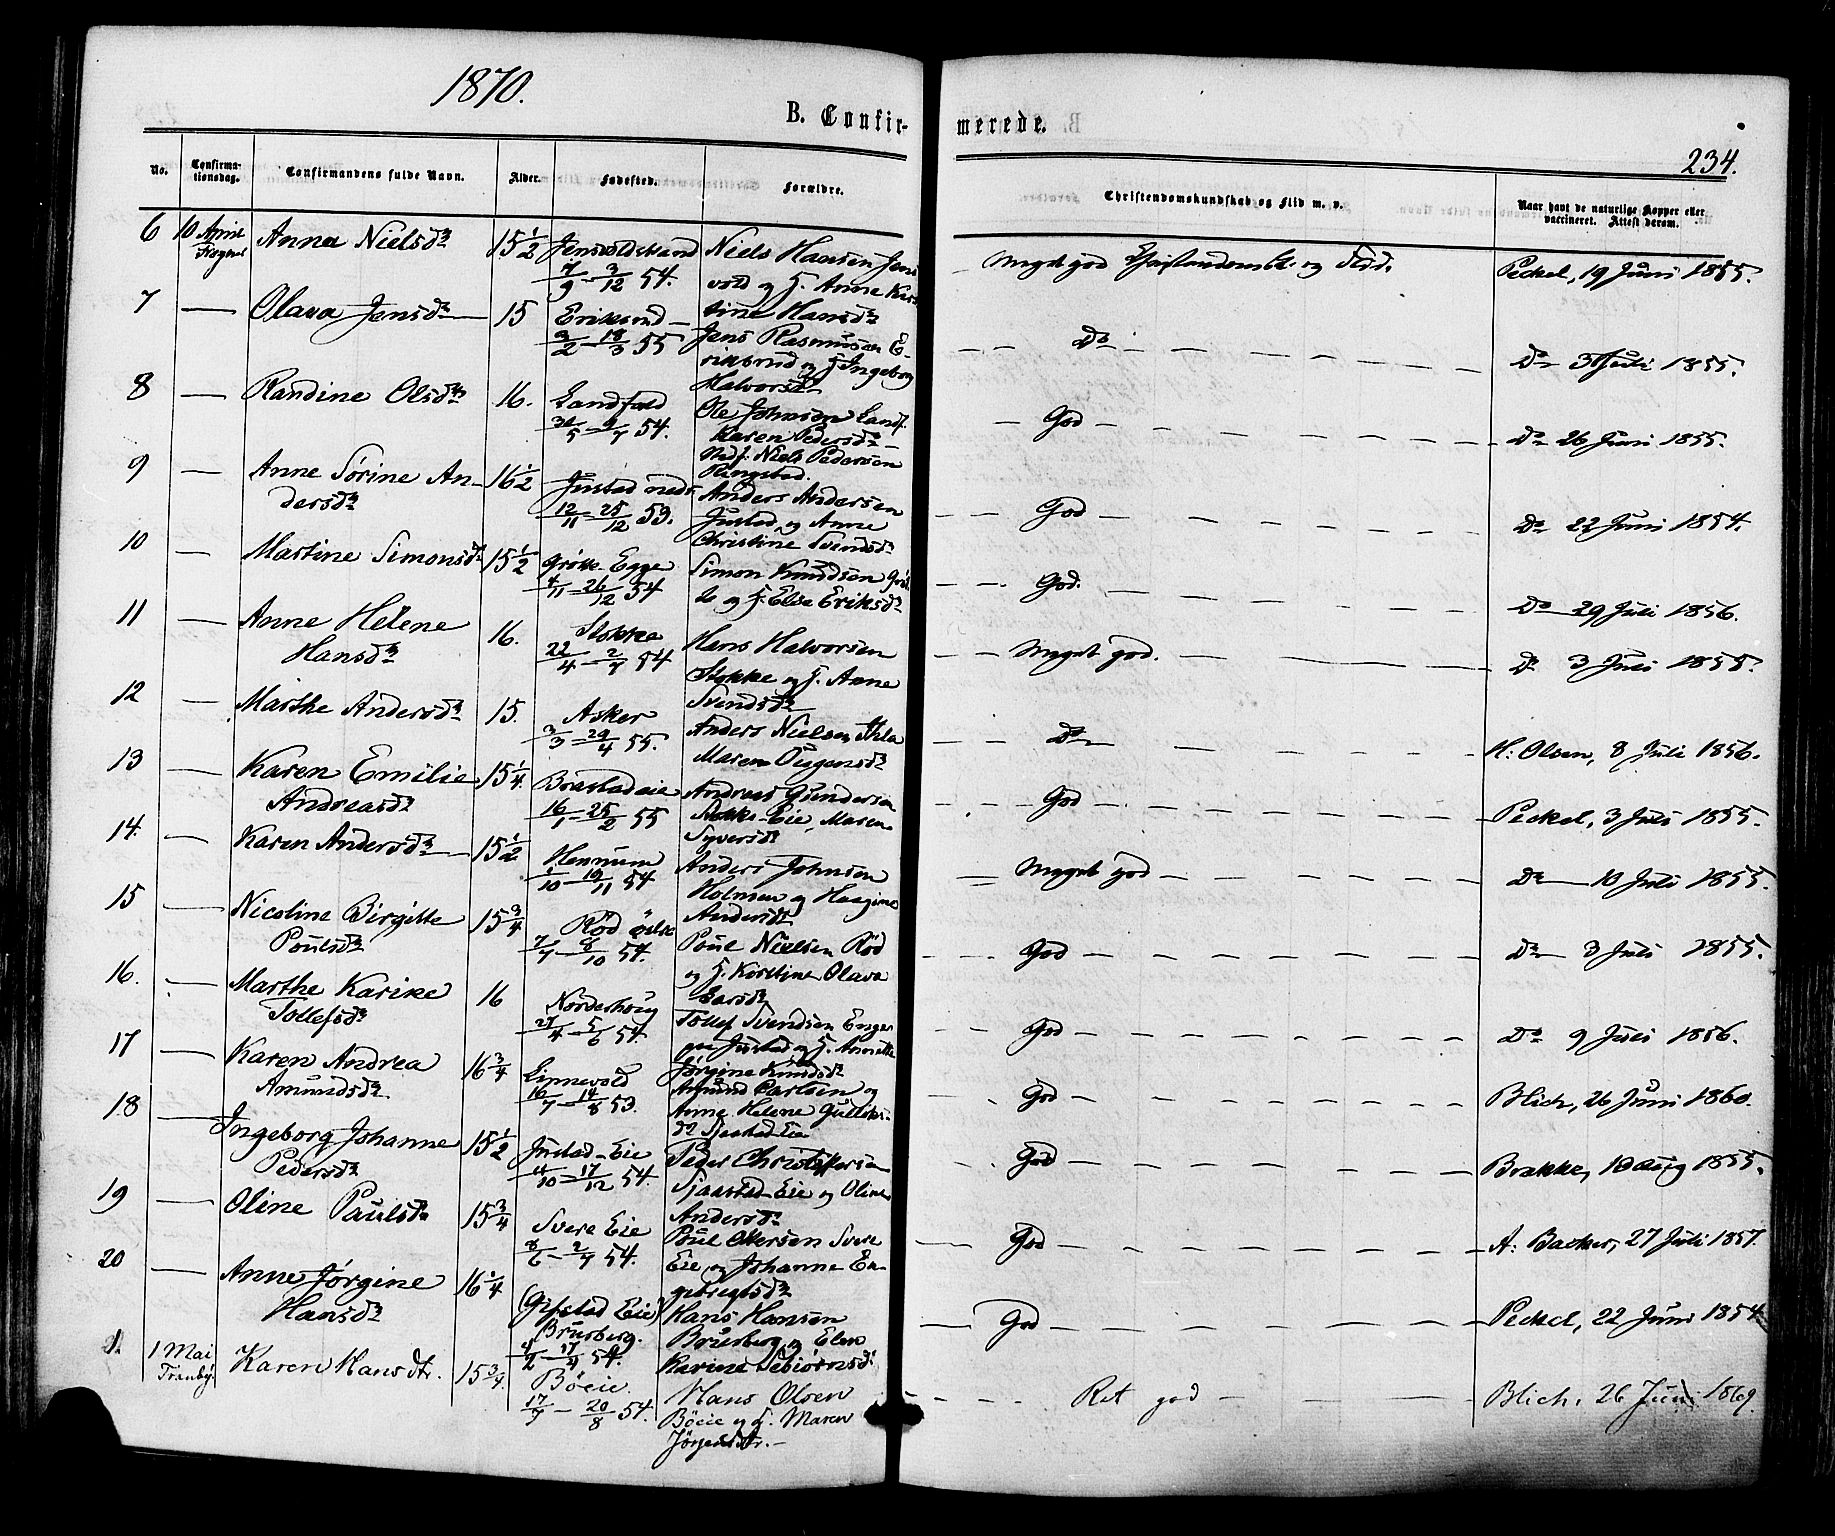 1870.
B. Confir-
merede.
234.
No.
Confirma-
tionsdag.
Confirmandens fulde Navn.
Alder.
Fødested.
Forældre.
Christendomskundskab og Flid m. v.
Naar havt de naturlige Kopper eller
vaccineret. Attest derom.
6 10 April Anna Nielsdr 15 1/2 9/12 54. Niels Hansen Jens
vold og h. Anne Kirs
tine Hansdr
Meget god Christendomsk. og Flid. Peckel, 19 Juni 1855.
7 — Olava Jensdr 15 Eriksrud 18/3 55
Jens Rasmussen E-
riksrud og h. Ingeborg
Halvorsdr
Do Do 3 Juli 1855.
8 — Randine Olsdr 16. Landfald 9/7 54.
Ole Johnsen Landf.
Karen Pedersdr
Niels Pedersen
Ringstad.
God Do 26 Juni 1855.
9 — Anne Sørine An-
dersdr 16 1/2 Justad nedr 12/11 — 25/12 53.
Anders Andersen
Justad og Anne
Christine Svendsdr
God Do 22 Juni 1854.
10 — Martine Simonsdr 15 1/2 Egge 4/11 — 26/12 54
Simon Knudsen
og h. Else Eriksdr
God. Do 29 Juli 1856.
11 — Anne Helene
Hansdr 16. Stokke 22/4 — 2/7 54
Hans Halvorsen
Stokke og h. Anne
Svendsdr
Meget god. Do 3 Juli 1855.
12 — Marthe Andersdr 15. Asker 3/3 — 29/4 55.
Anders Nielsen
Maren
Do H. Olsen, 8 Juli 1856.
13 — Karen Emilie
Andreasdr 15 1/4 16/1 — 25/2 55
Andreas Gundersen
Stokke Eie, Maren
Syversdr
God Peckel, 3 Juli 1855.
14. — Karen Andersdr 15 1/2 Hennum 1/10 — 19/11 54
Anders Johnsen
Holmen og
Andersdr
Meget god Do 10 Juli 1855.
15 — Nicoline Birgitte
Poulsdr 15 3/4 Rød 7/7 — 8/10 54.
Poul Nielsen Rød
og h. Kirstine Olava
Larsdr
God Do 3 Juli 1855.
16. — Marthe Karine
Tollefsdr 16 Norderhoug 27/4 — 5/6 54.
Tollef Svendsen Enger
Justad og h. Annette
Jørgine Knudsdr
God Do 9 Juli 1856.
17 — Karen Andrea
Amundsdr. 16 3/4 Linnevold 16/7 — 14/8 53.
Amund Carlsen og
Anne Helene Gulliks-
dr Sjaastad Eie
God Blich, 26 Juni 1860.
18 — Ingeborg Johanne
Pedersdr 15 1/2 Justad Eie 17/12 54.
Peder Christoffersen
Sjaastad Eie og Oline
Andersdr
God Brakke, 10 Aug 1855.
19 — Oline Paulsdr 15 3/4 Svere Eie 2/7 54.
Poul Ottersen Svere
Eie og Johanne En-
gebregtsdr
God A. Backer, 27 Juli 1857.
20 — Anne Jørgine
Hansdr 16 1/4 (Gifstad Eie)
Brusberg. 17/4 54.
Hans Hansen
Brusberg og Elen
Karine
God Peckel, 22 Juni 1854
1. 1 Mai
Tranby. Karen Hansdtr. 15 3/4. Böeie. 17/7 — 20/8 54.
Hans Olsen
Böeie og h. Maren
Jørgensdtr.
Ret god Blich, 26 Juni 1869.